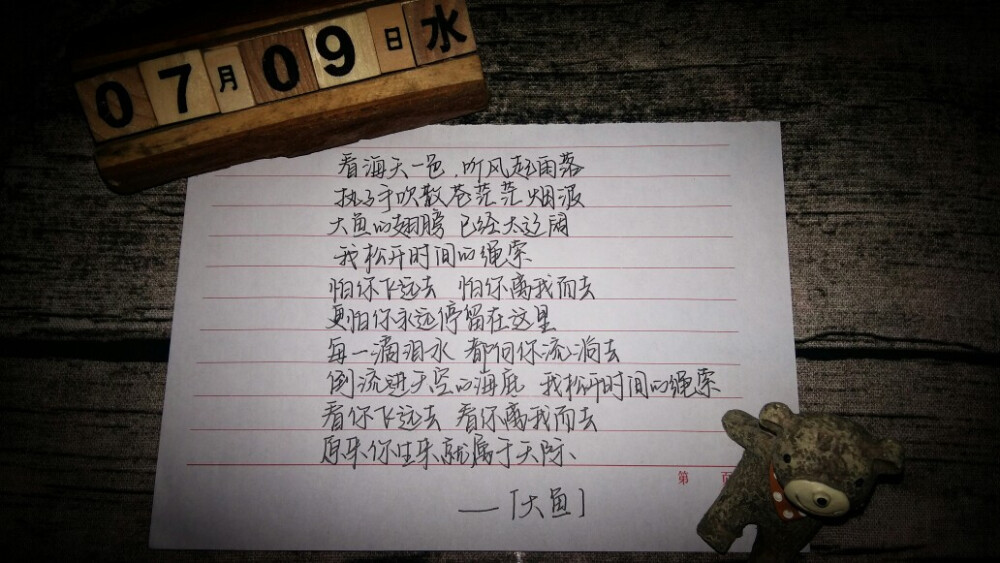 07月09日水
看海天一色,听风起雨落
执子手吹散苍茫茫烟波
大鱼的翅膀 已经太辽阔
我松开时间的绳索
怕你飞远去 怕你离我而去
更怕你永远停留在这里
每一滴泪水 都向你流淌去
倒流进天空的海底 我松开时间的绳索
看你飞远去 看你离我而去
原来你生来就属于天际、
——「大鱼」
第 页